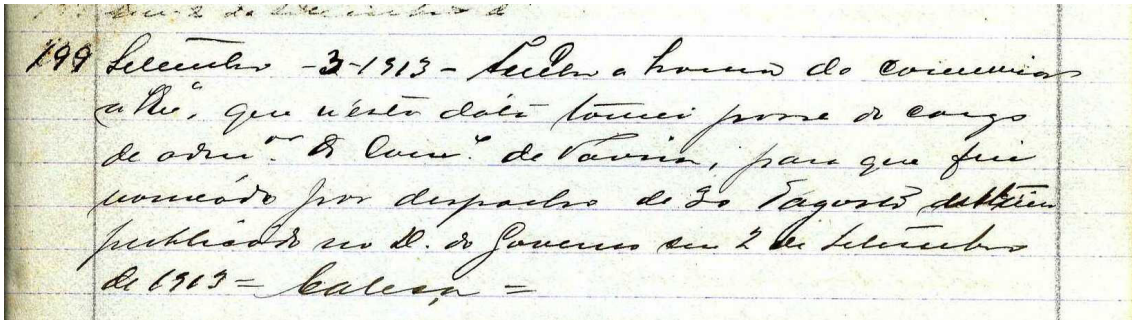 em 2 de Setembro d
199 Setembro -3-1913- Tenho a honra de comunicar
a V.Exª, que n'esta data tomei posse do cargo
de admor do Conco de Tavira, para que fui
nomeado por despacho de 30 d'agosto
publicado no D. do Governo em 2 de Setembro
de 1913 =